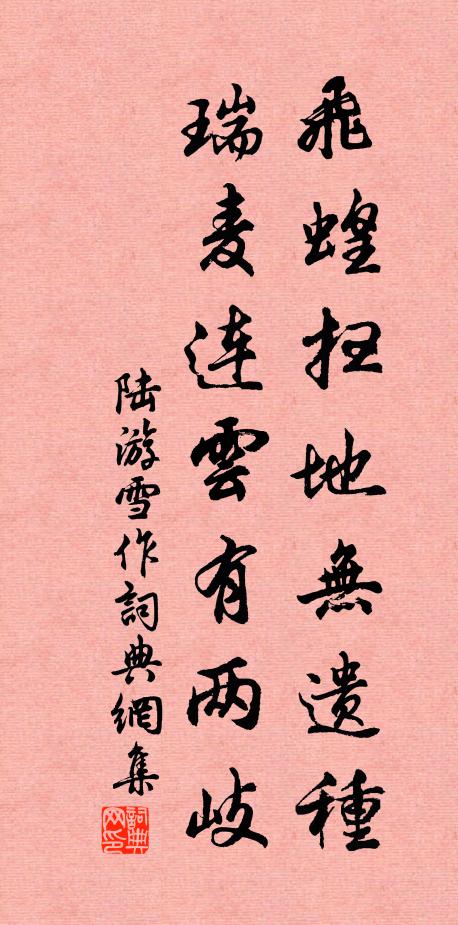 飛蝗扫地無遺種
瑞麦連雲有两岐
陆游雪作詞典網集
詞典网印